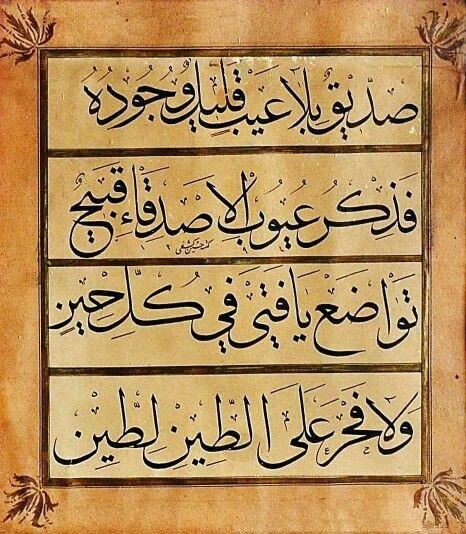 صَدِيقٌ بِلَا عَيْبٍ قَلِيلٌ وُجُودُهُ
فَذِكْرُ عُيُوبِ الْأَصْدِقَاءِ قَبِيحٌ
تَوَاضَعْ يَا فَتَى فِي كُلِّ حِينٍ
وَلَا فَخْرَ عَلَى الطِّينِ لِطِينٍ